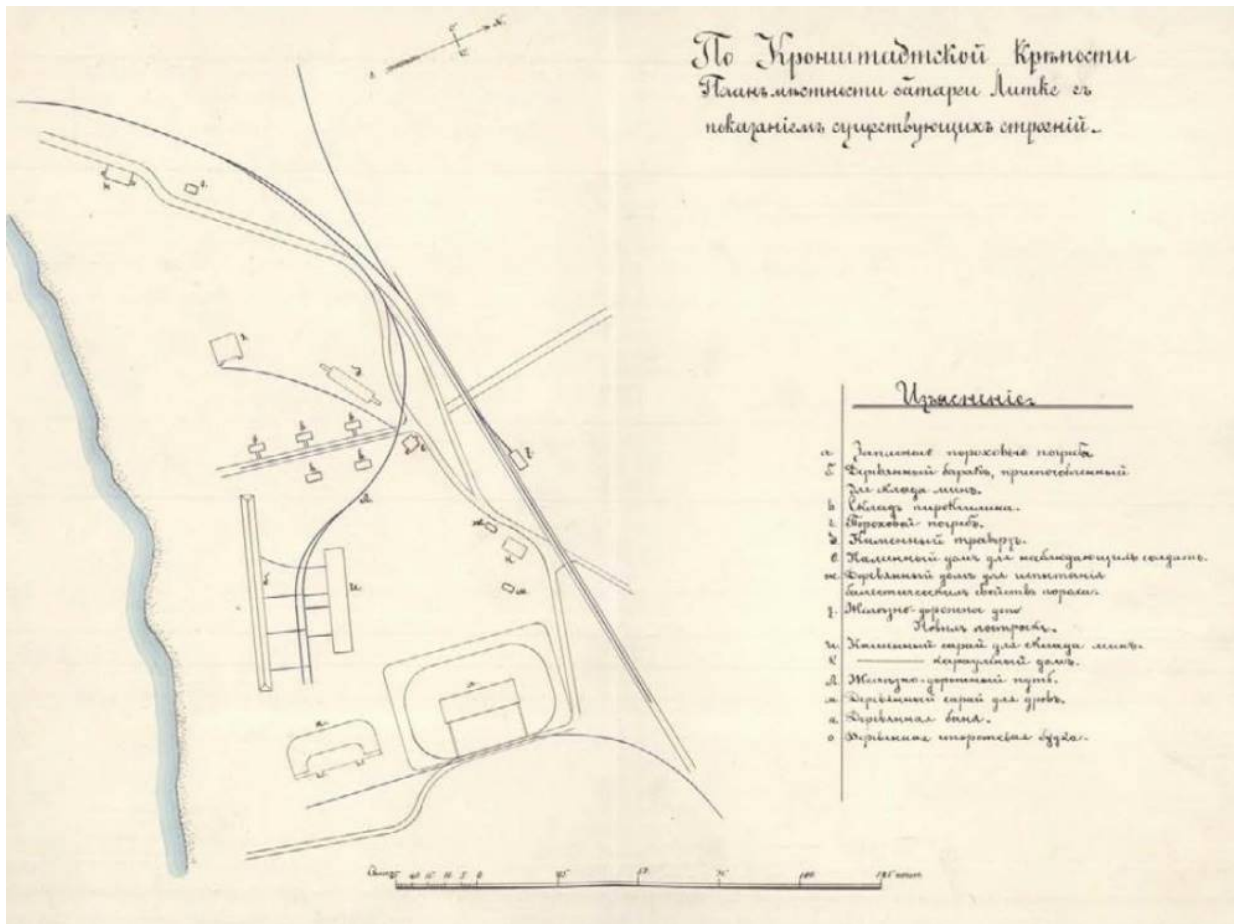 По Кронштадтской Крѣпости
Планъ мѣстности батареи Литке съ
показаніемъ существующихъ строеній.
Изъясненіе.
а Запасные пороховые погреба
б Деревянный баракъ, приспособленный
для склада минъ.
в Складъ пироксилина.
г. Пороховой погребъ.
д. Каменный траверзъ.
е Каменный домъ для наблюдающихъ солдатъ.
ж Деревянный домъ для испытанія
балистическихъ свойствъ пороха.
з. Желѣзно-дорожна
Новыхъ построекъ.
и. Каменный сарай для склада минъ.
к ——— караульный домъ.
л Желѣзно-дорожный путь.
м Деревянный сарай для дровъ.
н Деревянная баня.
о Деревянная будка.
25 20 15 10 5 0 25 50 75 100 125